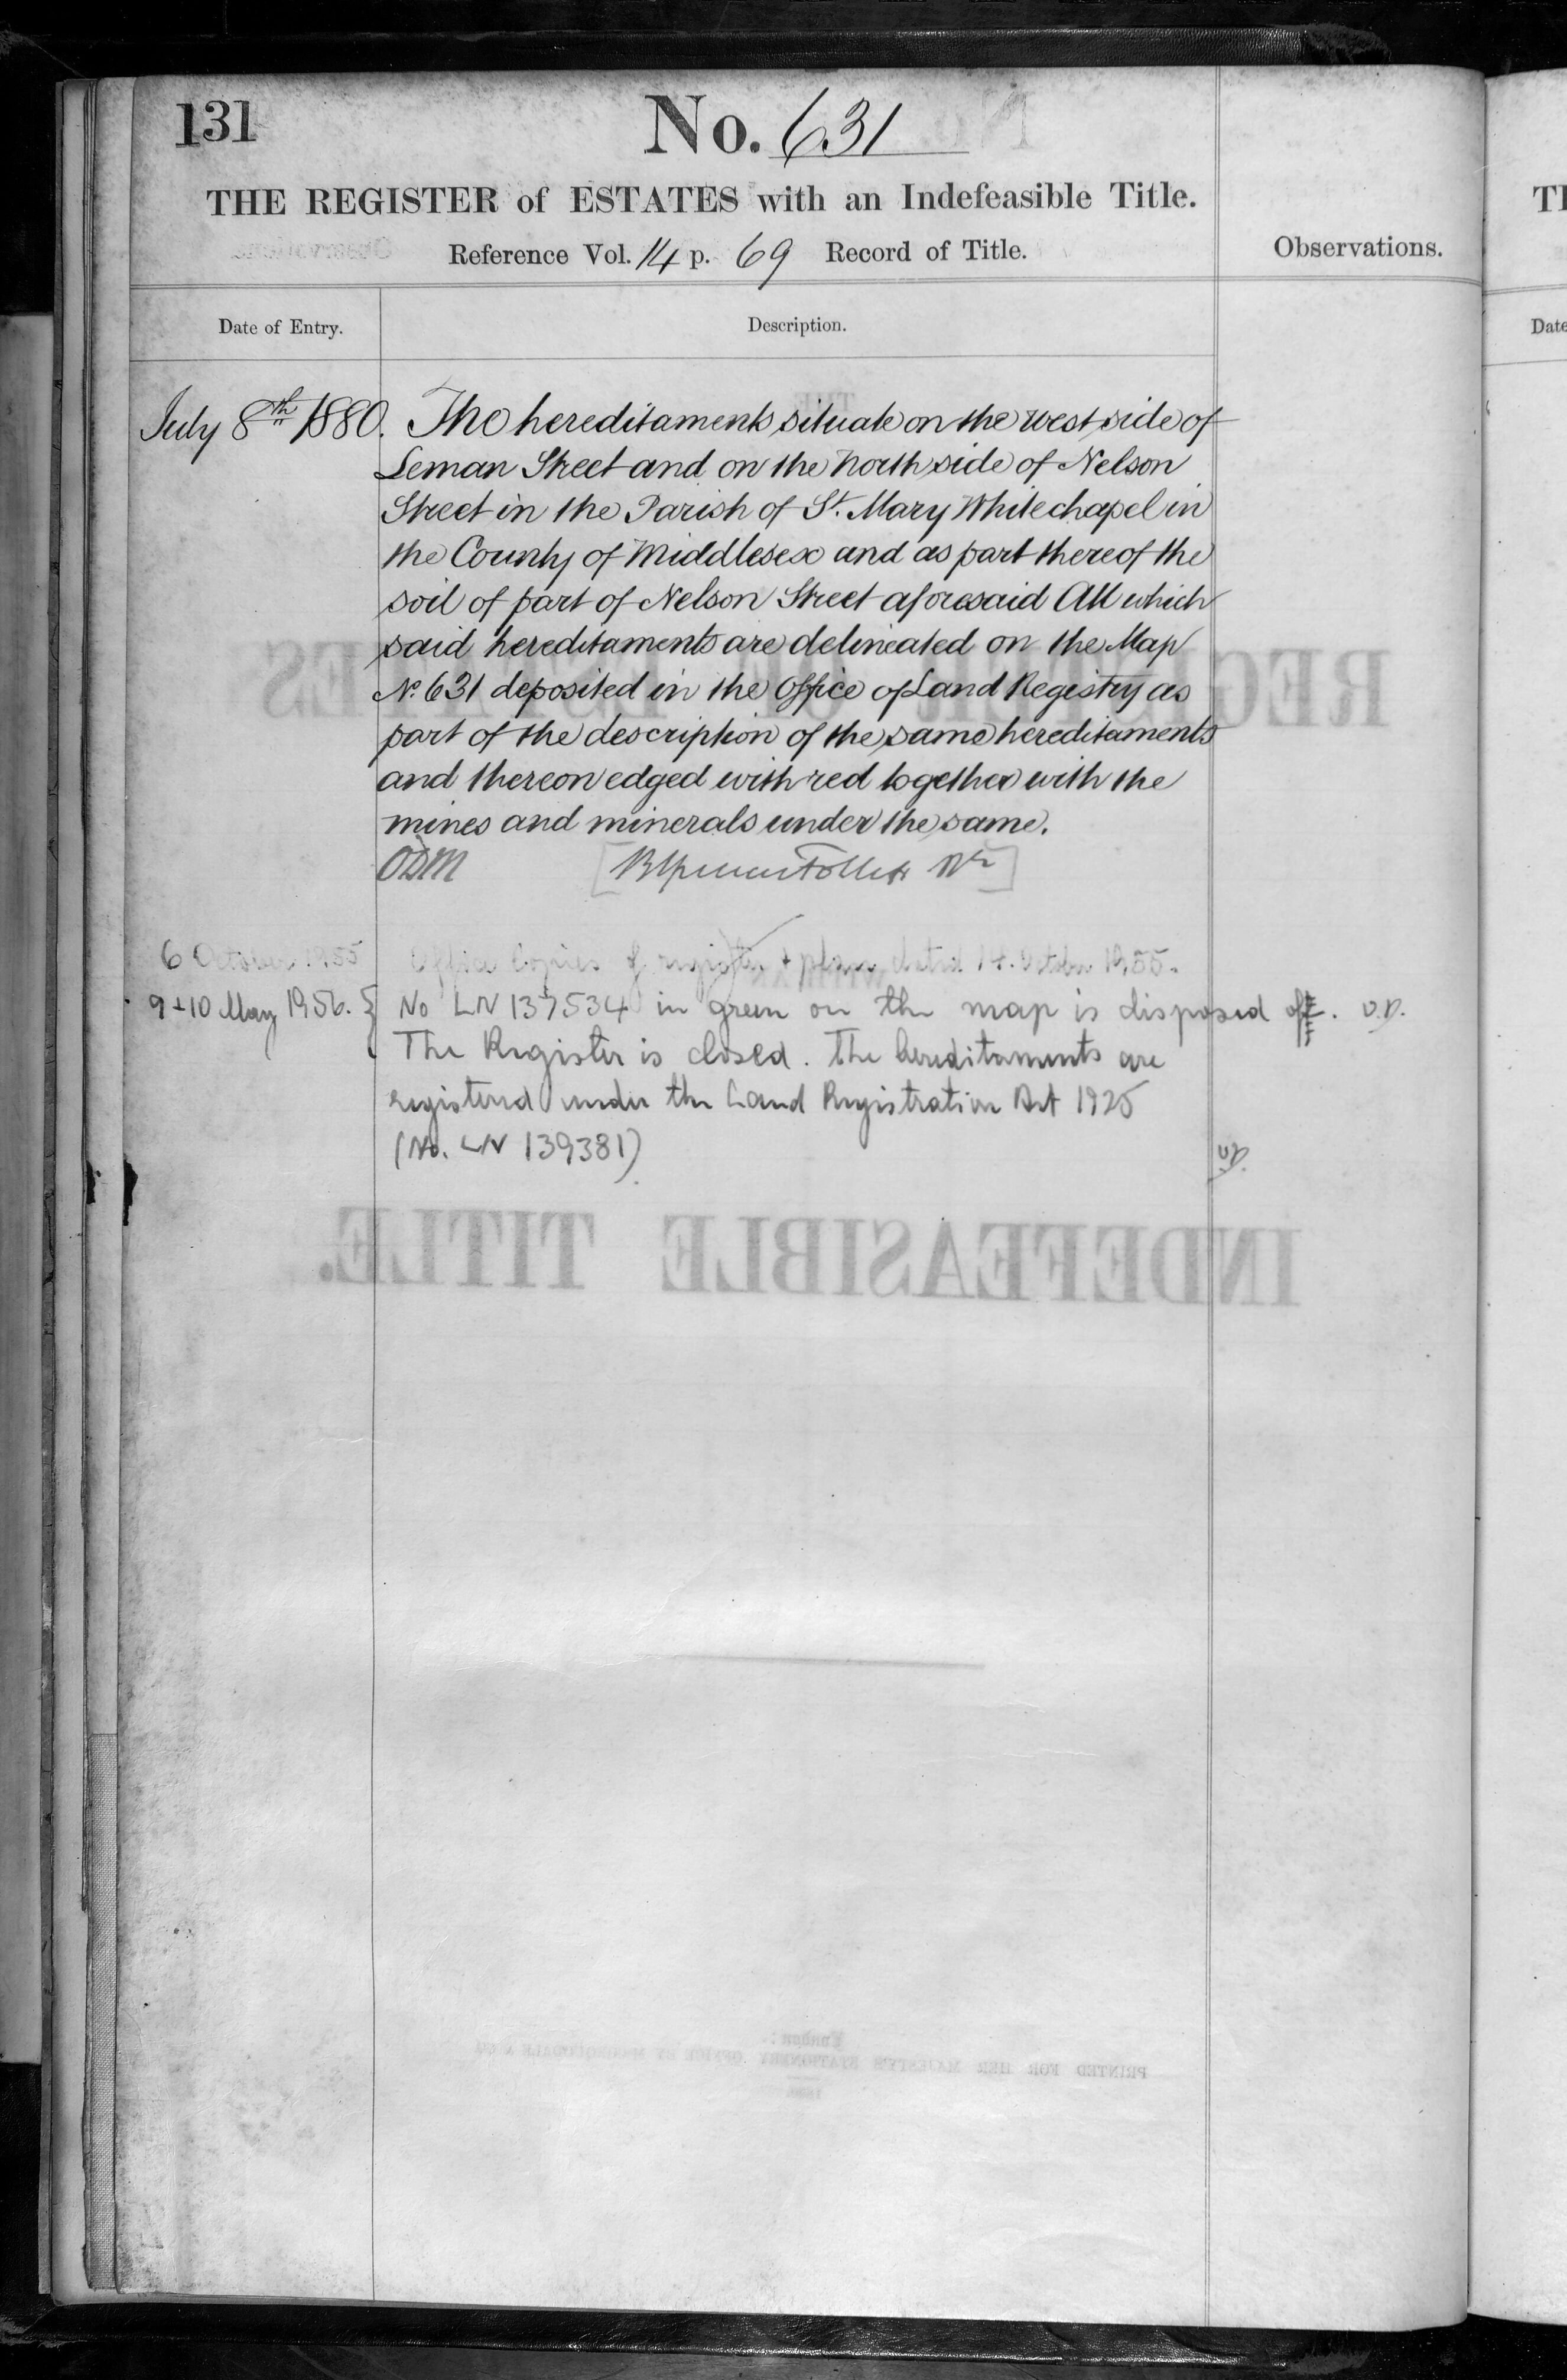 131
No. 631
THE REGISTER of ESTATES with an Indefeasible Title.
Reference Vol. 14 p. 69 Record of Title.
Observations.
Date of Entry.
Description.
July 8th 1880. The hereditaments situate on the west side of
Leman Street and on the North side of Nelson
Street in the Parish of St. Mary Whitechapel in
the County of Middlesex and as part thereof the
soil of part of Nelson Street aforesaid All which
said hereditaments are delineated on the Map
No. 631 deposited in the Office of Land Registry as
part of the description of the same hereditaments
and thereon edged with red together with the
mines and minerals under the same.
ODM
6 October 1955 Office Copies of register & plan dated 14. October 1955.
9 + 10 May 1956. { No LN 137534 in green on the map is disposed of. V.D.
The Register is closed. The hereditaments are
registered under the Land Registration Act 1925
(No. LN 139381) VD.
REGISTER OF ESTATES
INDEFEASIBLE TITLE.
PRINTED FOR HER MAJESTY'S STATIONERY OFFICE BY
TH
Date